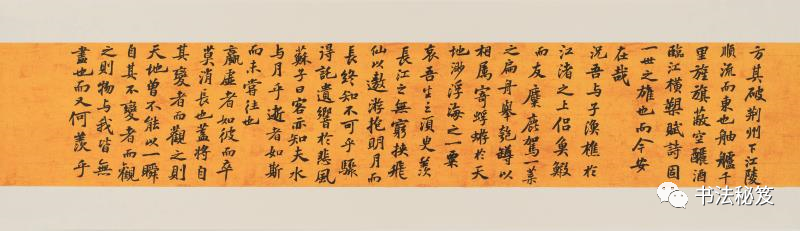 方其破荆州下江陵
順流而東也舳艫千
里旌旗蔽空釃酒
臨江橫槊賦詩固
一世之雄也而今安
在哉
況吾与子漁樵於
江渚之上侶魚鰕
而友麋鹿駕一葉
之扁舟舉匏罇以
相属寄蜉蝣於天
地渺浮海之一粟
哀吾生之須臾羨
長江之無窮挾飛
仙以遨游抱明月而
長終知不可乎驟
得託遺響於悲風
蘇子曰客亦知夫水
与月乎逝者如斯
而未嘗往也
贏虛者如彼而卒
莫消長也蓋將自
其變者而觀之則
天地曾不能以一瞬
自其不變者而觀
之則物与我皆無
盡也而又何羨乎
书法秘笈